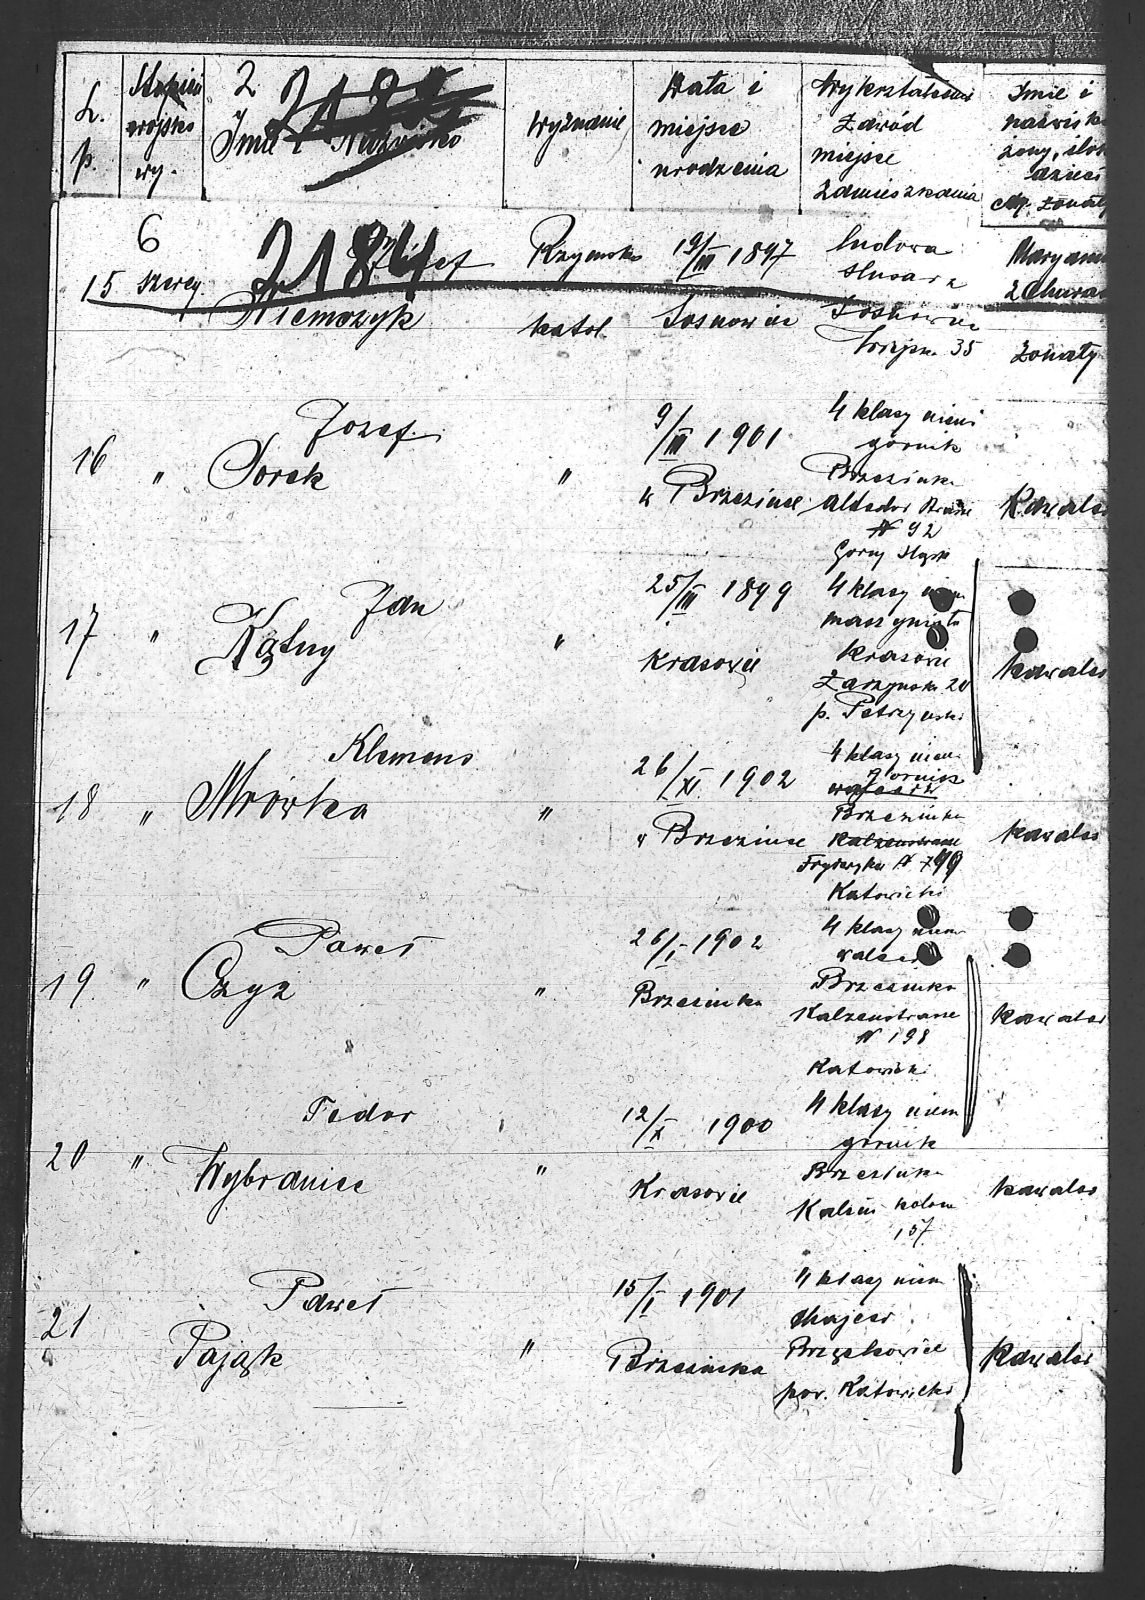 L.
p.
Stopień
wojsko
wy.
2
Imię i Nazwisko
Wyznanie
Data i
miejsce
urodzenia
Wykształcenie
Zawód
miejsce
zamieszkania
Imię i
nazwisk
żony, ilość
dzieci
żonaty
6
15 szereg.
2184
Józef
Niemczyk
Rzymsko
katol.
19/III 1897
Sosnowiec
ludowa
slusarz
Sosnowiec
35
Maryanna
żonaty
16 "
Józef
Sorek
"
9/III 1901
w Brzezince
4 klasy niem
górnik
Brzezinka
N 92
Gorny Sląsk
Kawaler
17 "
Jan
Kątny
"
25/III 1899
Krasowie
4 klasy niem
maszynista
Krasowie
20
p.
kawaler
18 "
Klemens
Mrówka
"
26/XI 1902
w Brzezince
4 klasy niem
górnik
Brzezinka
Kalzenstrasse
Fryderyka N 799
Katowicki
kawaler
19. "
Paweł
Czyż
"
26/I 1902
Brzezinka
4 klasy niem
Brzezinka
Kalzenstrasse
N 198
Katowicki
kawaler
20 "
Tedor
Wybraniec
"
12/X 1900
Krasowie
4 klasy niem
gornik
Brzezinka
157
kawaler
21
Paweł
Pająk
"
15/I 1901
Brzezinka
4 klasy niem
Brzęskowice
pow. Katowicki
Kawaler